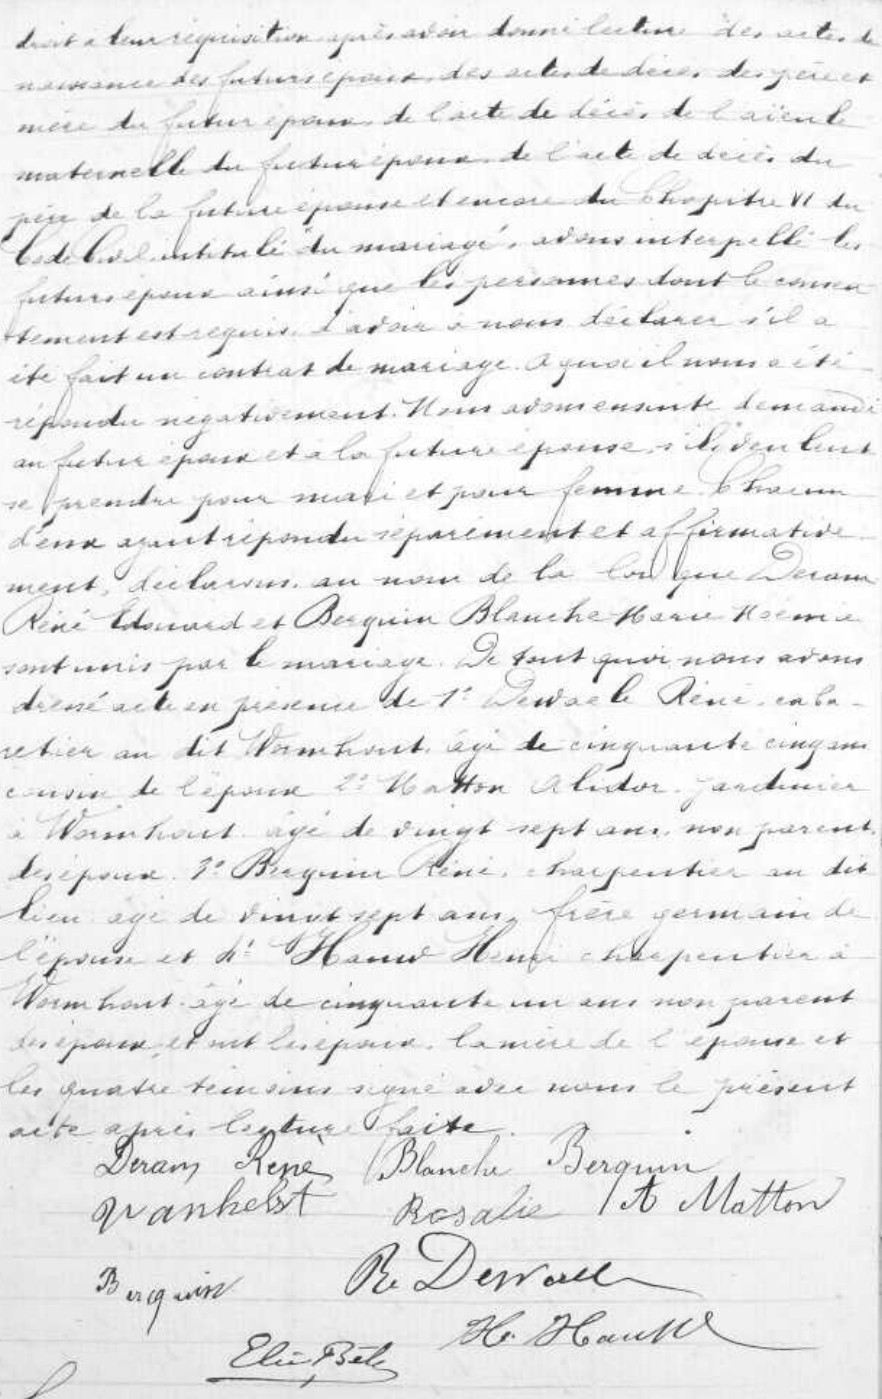 droit à leur réquisition après avoir donné lecture des actes de
naissance des futurs époux, des actes de décès des père et
mère du futur époux de l'acte de décès de l'aïeule
maternelle du futur époux de l'acte de décès du
père de la future épouse et encore du Chapitre VI du
Code Civil intitulé "du mariage", avons interpellé les
futurs époux ainsi que les personnes dont le consen
tement est requis, d'avoir à nous déclarer s'il a
été fait un contrat de mariage. A quoi il nous a été
répondu négativement. Nous avons ensuite demandé
au futur époux et à la future épouse s'ils veulent
se prendre pour mari et pour femme. Chacun
d'eux ayant répondu séparément et affirmative
ment, déclarons au nom de la loi que Deram
Réné Edouard et Berquin Blanche Marie Noémie
sont unis par le mariage. De tout quoi nous avons
dressé acte en présence de 1° Dewaele Réné, caba-
retier au dit Wormhout, âgé de cinquante cinq ans
cousin de l'époux 2° Matton Alidor, jardinier
à Wormhout âgé de vingt sept ans, non parent
des époux 3° Berquin Réné, charpentier au dit
lieu âgé de vingt sept ans, frère germain de
l'épouse et 4° Hauw Henri charpentier à
Wormhout âgé de cinquante un ans non parent
des époux, et ont les époux, la mère de l'épouse et
les quatre témoins signé avec nous le présent
acte après lecture faite.
Deram René Blanche Berquin
Vanhelst Rosalie A Matton
Berquin Re Dewaele
H. Hauw
Elie